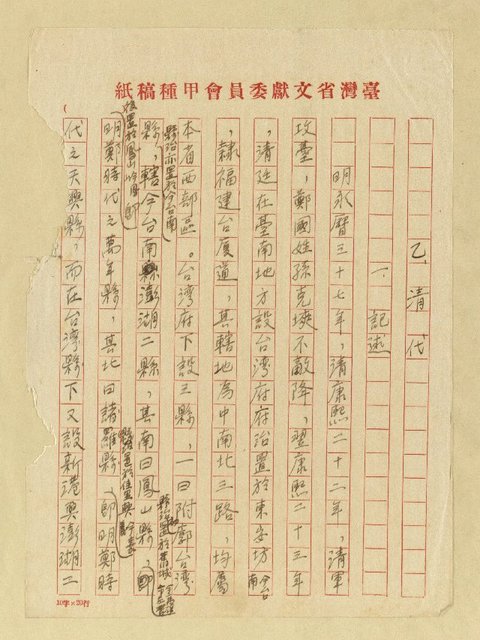 臺灣省文獻委員會甲種稿紙
乙、清代
一、記述
明永曆三十七年，清康熙二十二年，清軍
攻臺，鄭國姓孫克塽不敵降，翌康熙二十三年
，清廷在臺南地方設台灣府府治置於東安坊今台南
，隸福建台廈道，其轄地為中南北三路，均屬
本省西部區。台灣府下設三縣，一曰附廓台灣
縣治亦置於今台南
縣，轄今台南縣澎湖二縣，其南曰鳳山縣，即
明鄭時代之萬年縣，其北曰諸羅縣，即明鄭時
代之天興縣，而在台灣縣下又設新港與澎湖二
10行×20行